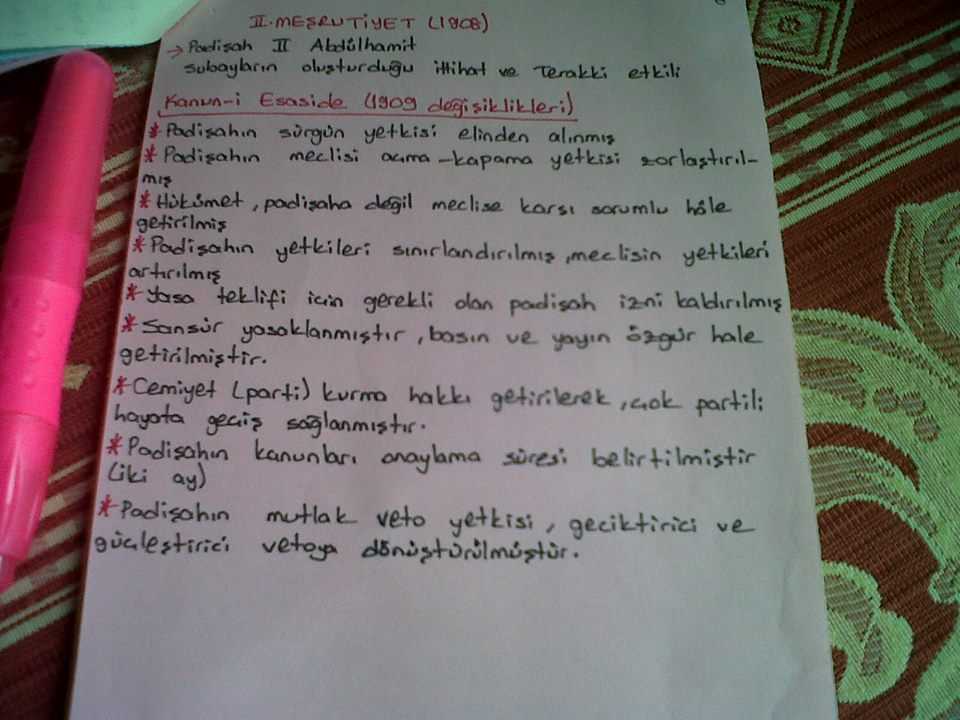 II. MEŞRUTİYET (1908)
→ Padişah II Abdülhamit
Subayların oluşturduğu ittihat ve Terakki etkili
Kanun-i Esaside (1909 değişiklikleri)
* Padişahın sürgün yetkisi elinden alınmış
* Padişahın meclisi açma-kapama yetkisi zorlaştırıl-
mış
* Hükümet, padişaha değil meclise karşı sorumlu hâle
getirilmiş
* Padişahın yetkileri sınırlandırılmış, meclisin yetkileri
artırılmış
* Yasa teklifi için gerekli olan padişah izni kaldırılmış
* Sansür yasaklanmıştır, basın ve yayın özgür hale
getirilmiştir.
* Cemiyet (parti) kurma hakkı getirilerek, çok partili
hayata geçiş sağlanmıştır.
* Padişahın kanunları onaylama süresi belirtilmiştir
(iki ay)
* Padişahın mutlak veto yetkisi, geciktirici ve
güçleştirici vetoya dönüştürülmüştür.